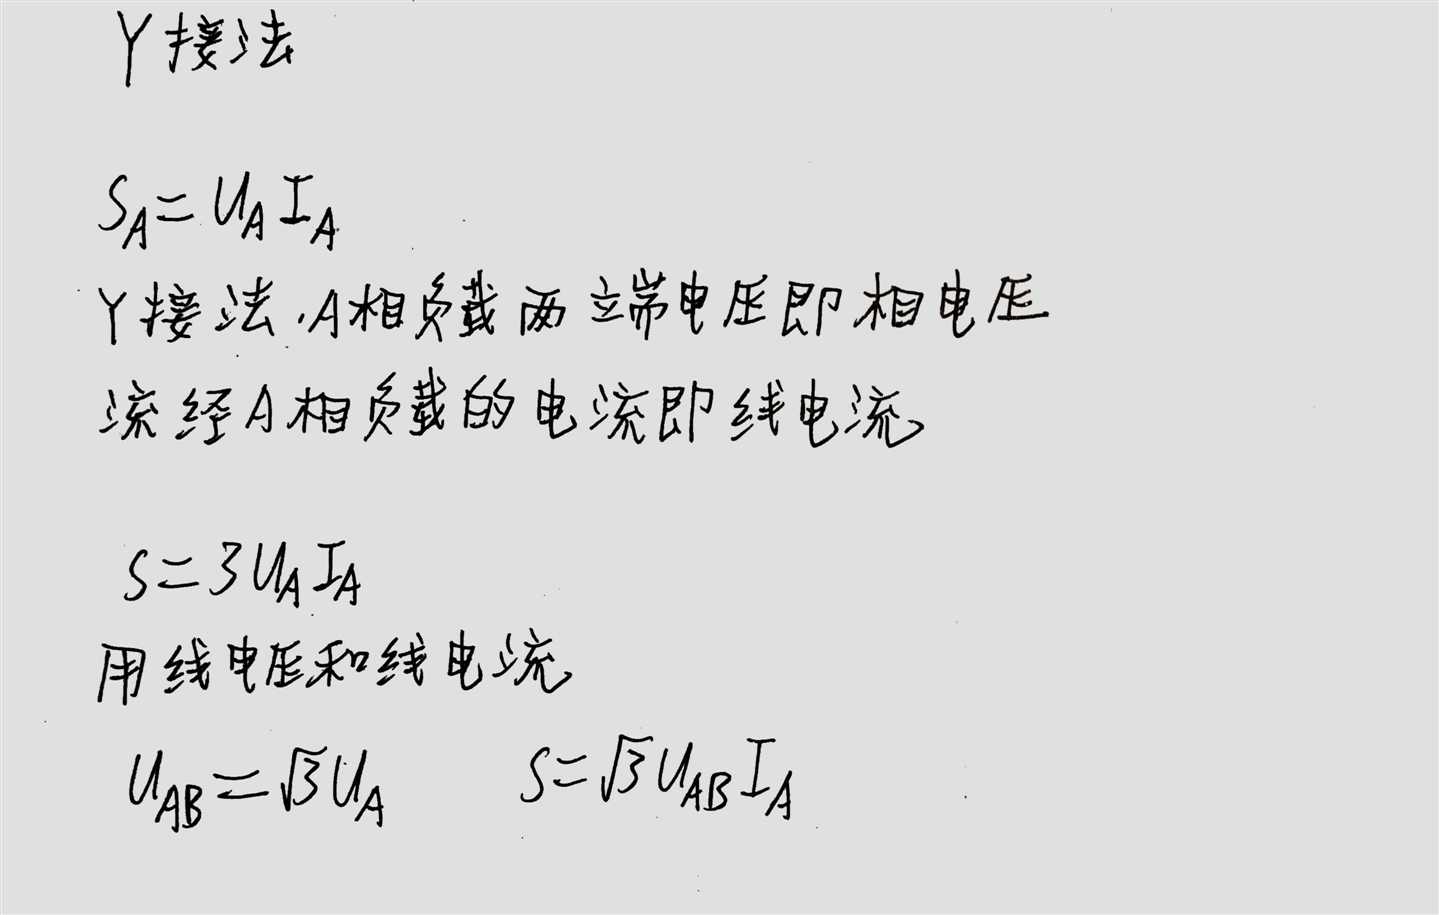 Y接法
S_A=U_A I_A
Y接法.A相负载两端电压即相电压
流经A相负载的电流即线电流
S=3U_A I_A
用线电压和线电流
U_AB=√3U_A S=√3U_AB I_A